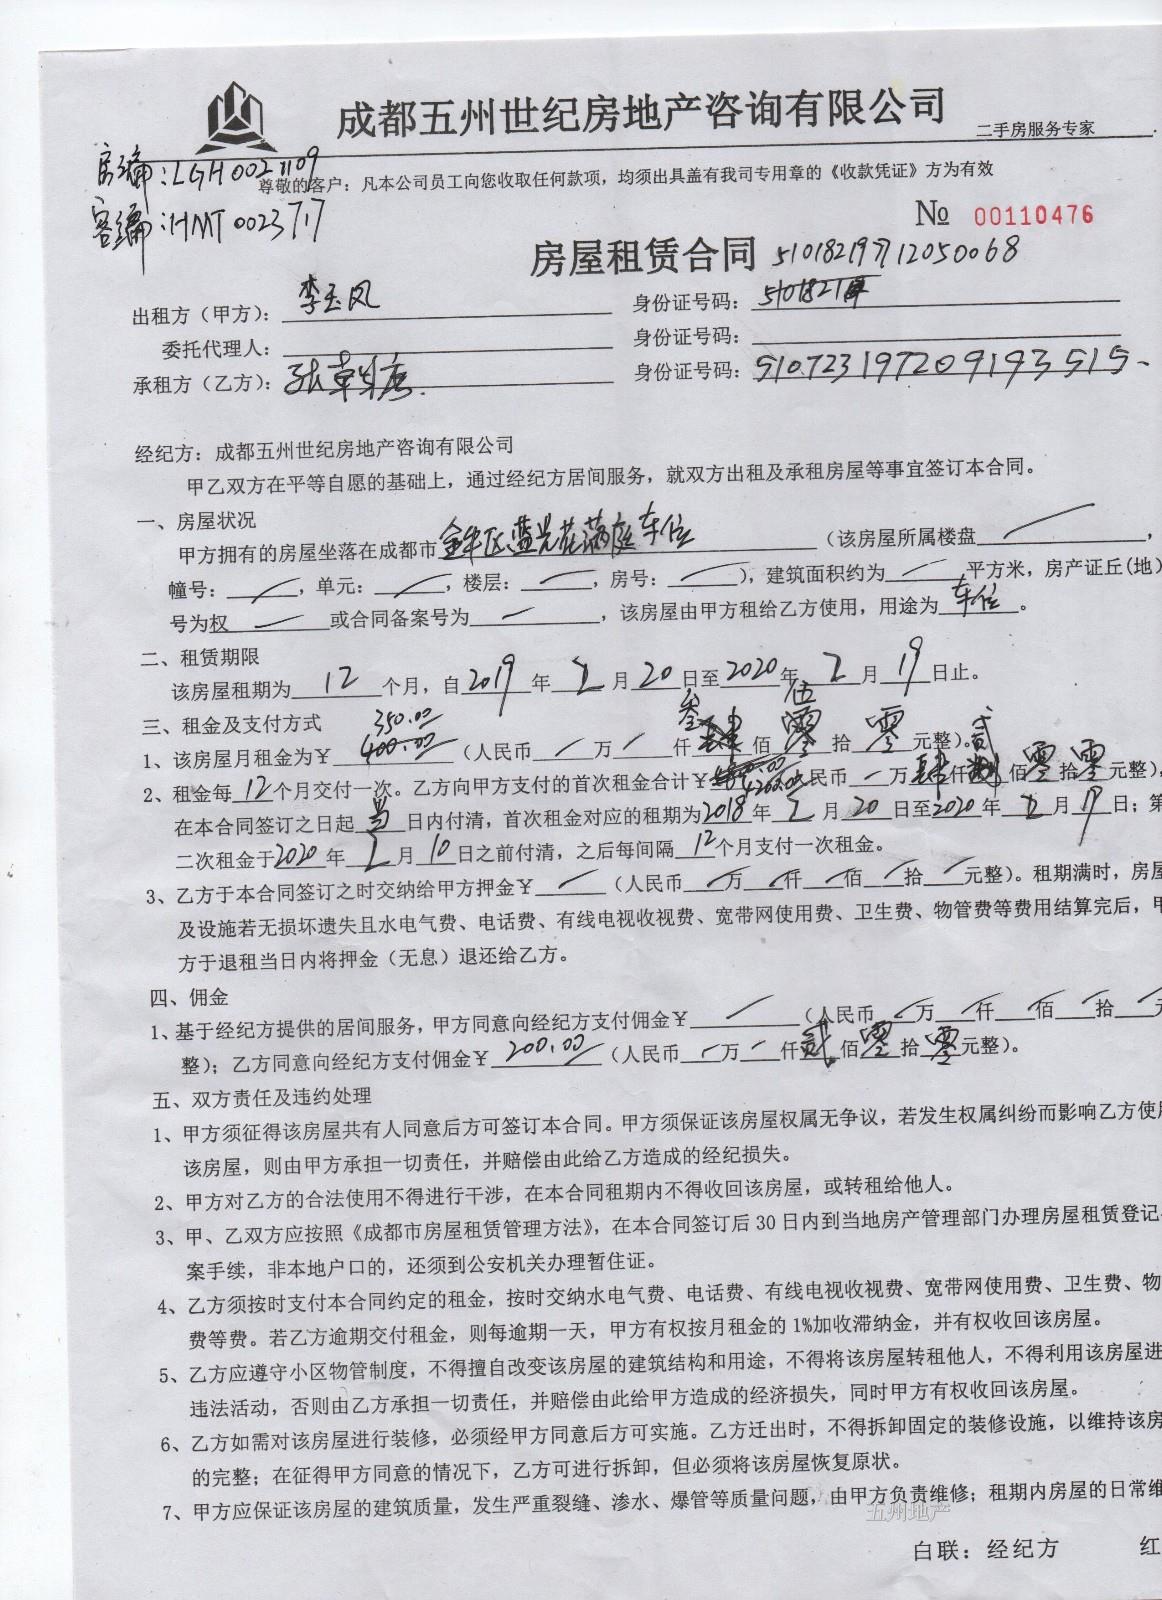 成都五州世纪房地产咨询有限公司 二手房服务专家
房编:LGH0021109
尊敬的客户：凡本公司员工向您收取任何款项，均须出具盖有我司专用章的《收款凭证》方为有效
客编:HMT0023717
№ 00110476
房屋租赁合同 510182197712050068
出租方（甲方）： 李玉凤 身份证号码： 5101821
委托代理人： 身份证号码：
承租方（乙方）： 张 身份证号码： 510723197209193515
经纪方：成都五州世纪房地产咨询有限公司
甲乙双方在平等自愿的基础上，通过经纪方居间服务，就双方出租及承租房屋等事宜签订本合同。
一、房屋状况
甲方拥有的房屋坐落在成都市 金牛区蓝光花满庭车位 （该房屋所属楼盘 ，
幢号： ，单元： ，楼层： ，房号： ），建筑面积约为 平方米，房产证丘(地)
号为权 或合同备案号为 ，该房屋由甲方租给乙方使用，用途为 车位 。
二、租赁期限
该房屋租期为 12 个月，自 2019 年 2 月 20 日至 2020 年 2 月 19 日止。
三、租金及支付方式
1、该房屋月租金为￥ 350.00 400.00 （人民币 万 仟 叁 肆 佰 伍 零 拾 零 元整）。
2、租金每 12 个月交付一次。乙方向甲方支付的首次租金合计￥ 4200.00 民币 万 肆 仟 贰 佰 零 拾 零 元整），
在本合同签订之日起 当 日内付清，首次租金对应的租期为 2018 年 2 月 20 日至 2020 年 2 月 19 日；第
二次租金于 2020 年 2 月 10 日之前付清，之后每间隔 12 个月支付一次租金。
3、乙方于本合同签订之时交纳给甲方押金￥ （人民币 万 仟 佰 拾 元整）。租期满时，房屋
及设施若无损坏遗失且水电气费、电话费、有线电视收视费、宽带网使用费、卫生费、物管费等费用结算完后，甲
方于退租当日内将押金（无息）退还给乙方。
四、佣金
1、基于经纪方提供的居间服务，甲方同意向经纪方支付佣金￥ （人民币 万 仟 佰 拾 元
整）；乙方同意向经纪方支付佣金￥ 200.00 （人民币 万 仟 贰 佰 零 拾 零 元整）。
五、双方责任及违约处理
1、甲方须征得该房屋共有人同意后方可签订本合同。甲方须保证该房屋权属无争议，若发生权属纠纷而影响乙方使用
该房屋，则由甲方承担一切责任，并赔偿由此给乙方造成的经纪损失。
2、甲方对乙方的合法使用不得进行干涉，在本合同租期内不得收回该房屋，或转租给他人。
3、甲、乙双方应按照《成都市房屋租赁管理方法》，在本合同签订后 30 日内到当地房产管理部门办理房屋租赁登记
案手续，非本地户口的，还须到公安机关办理暂住证。
4、乙方须按时支付本合同约定的租金，按时交纳水电气费、电话费、有线电视收视费、宽带网使用费、卫生费、物
费等费。若乙方逾期交付租金，则每逾期一天，甲方有权按月租金的 1%加收滞纳金，并有权收回该房屋。
5、乙方应遵守小区物管制度，不得擅自改变该房屋的建筑结构和用途，不得将该房屋转租他人，不得利用该房屋进
违法活动，否则由乙方承担一切责任，并赔偿由此给甲方造成的经济损失，同时甲方有权收回该房屋。
6、乙方如需对该房屋进行装修，必须经甲方同意后方可实施。乙方迁出时，不得拆卸固定的装修设施，以维持该房
的完整；在征得甲方同意的情况下，乙方可进行拆卸，但必须将该房屋恢复原状。
7、甲方应保证该房屋的建筑质量，发生严重裂缝、渗水、爆管等质量问题，由甲方负责维修；租期内房屋的日常维
五州地产
白联：经纪方 红